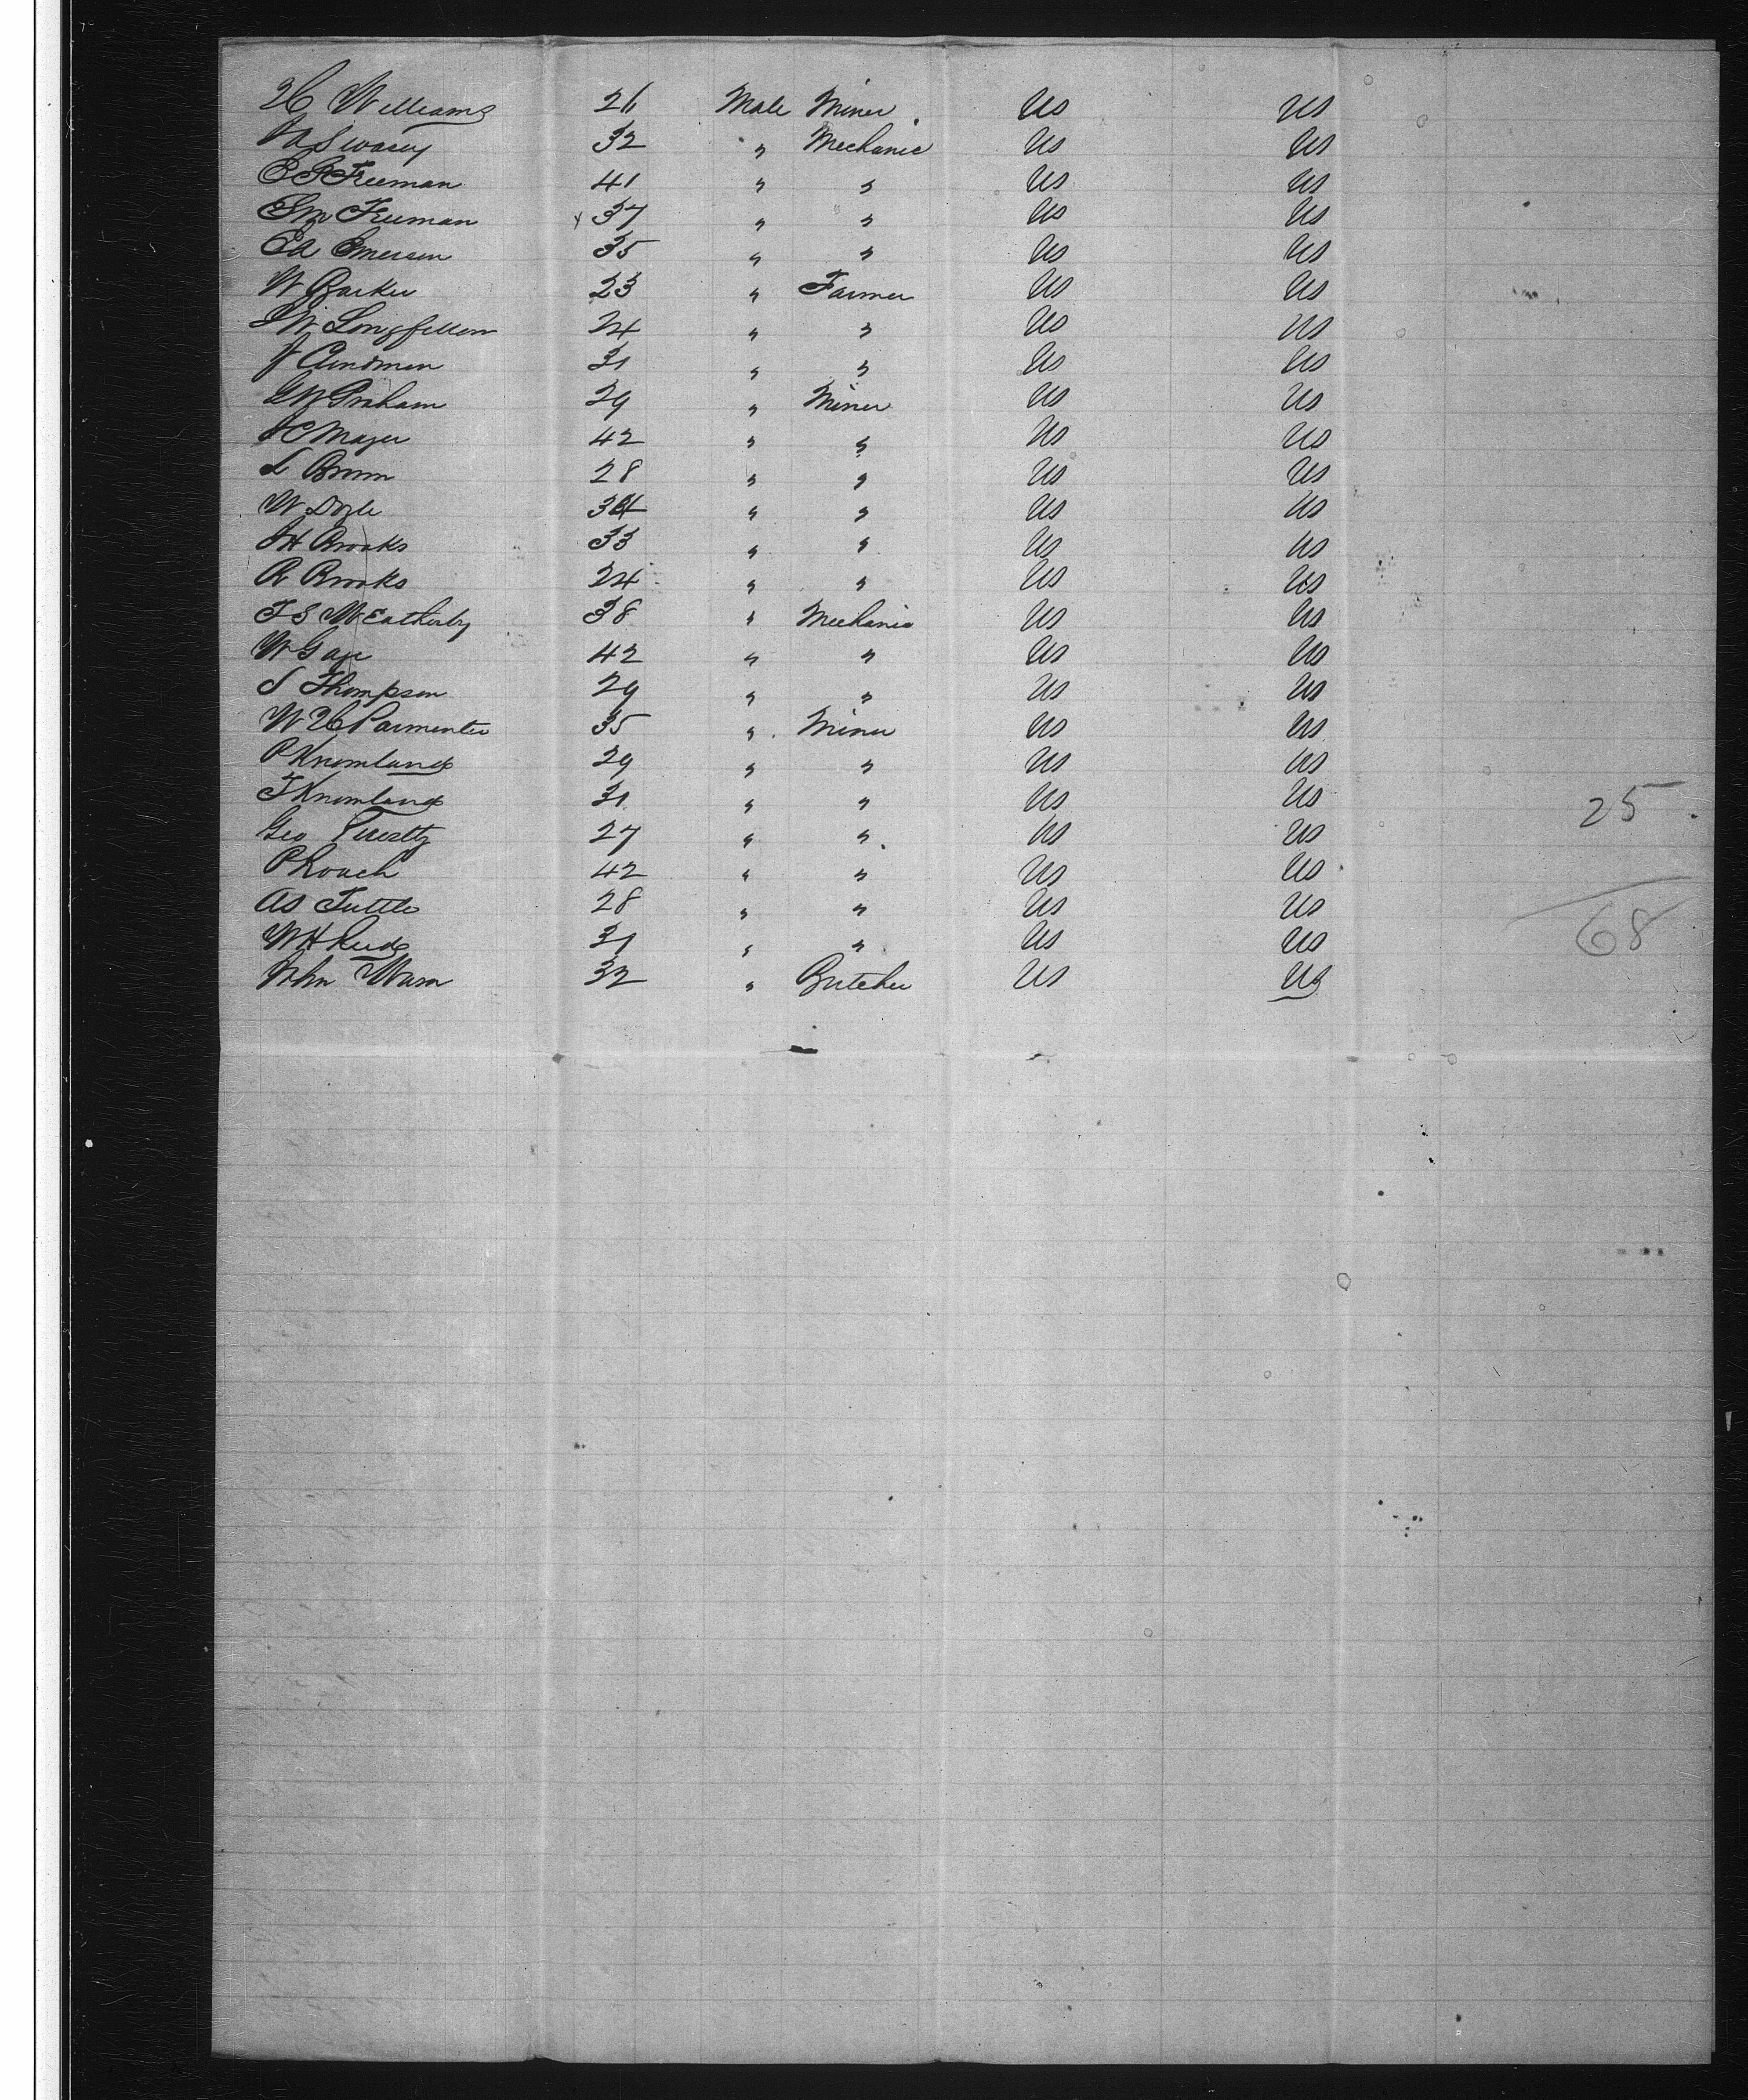 H Williams 26 Male Miner US US
Swasey 32 " Mechanic US US
E F Freeman 41 " " US US
Freeman 37 " " US US
Ed Emerson 35 " " US US
W Barker 23 " Farmer US US
W Longfellow 24 " " US US
J 31 " " US US
G W Graham 29 " Miner US US
Mayer 42 " " US US
L Brown 28 " " US US
W Doyle 34 " " US US
J H Brooks 33 " " US US
R Brooks 24 " " US US
T S WEatherby 38 " Mechanic US US
W Gage 42 " " US US
S Thompson 29 " " US US
W H Parmenter 35 " Miner US US
P Knowland 29 " " US US
T Knowland 31 " " US US
25
Geo 27 " " US US
P Roach 42 " " US US
AS Tuttle 28 " " US US
68
W H Reed 31 " " US US
John 32 " Butcher US US